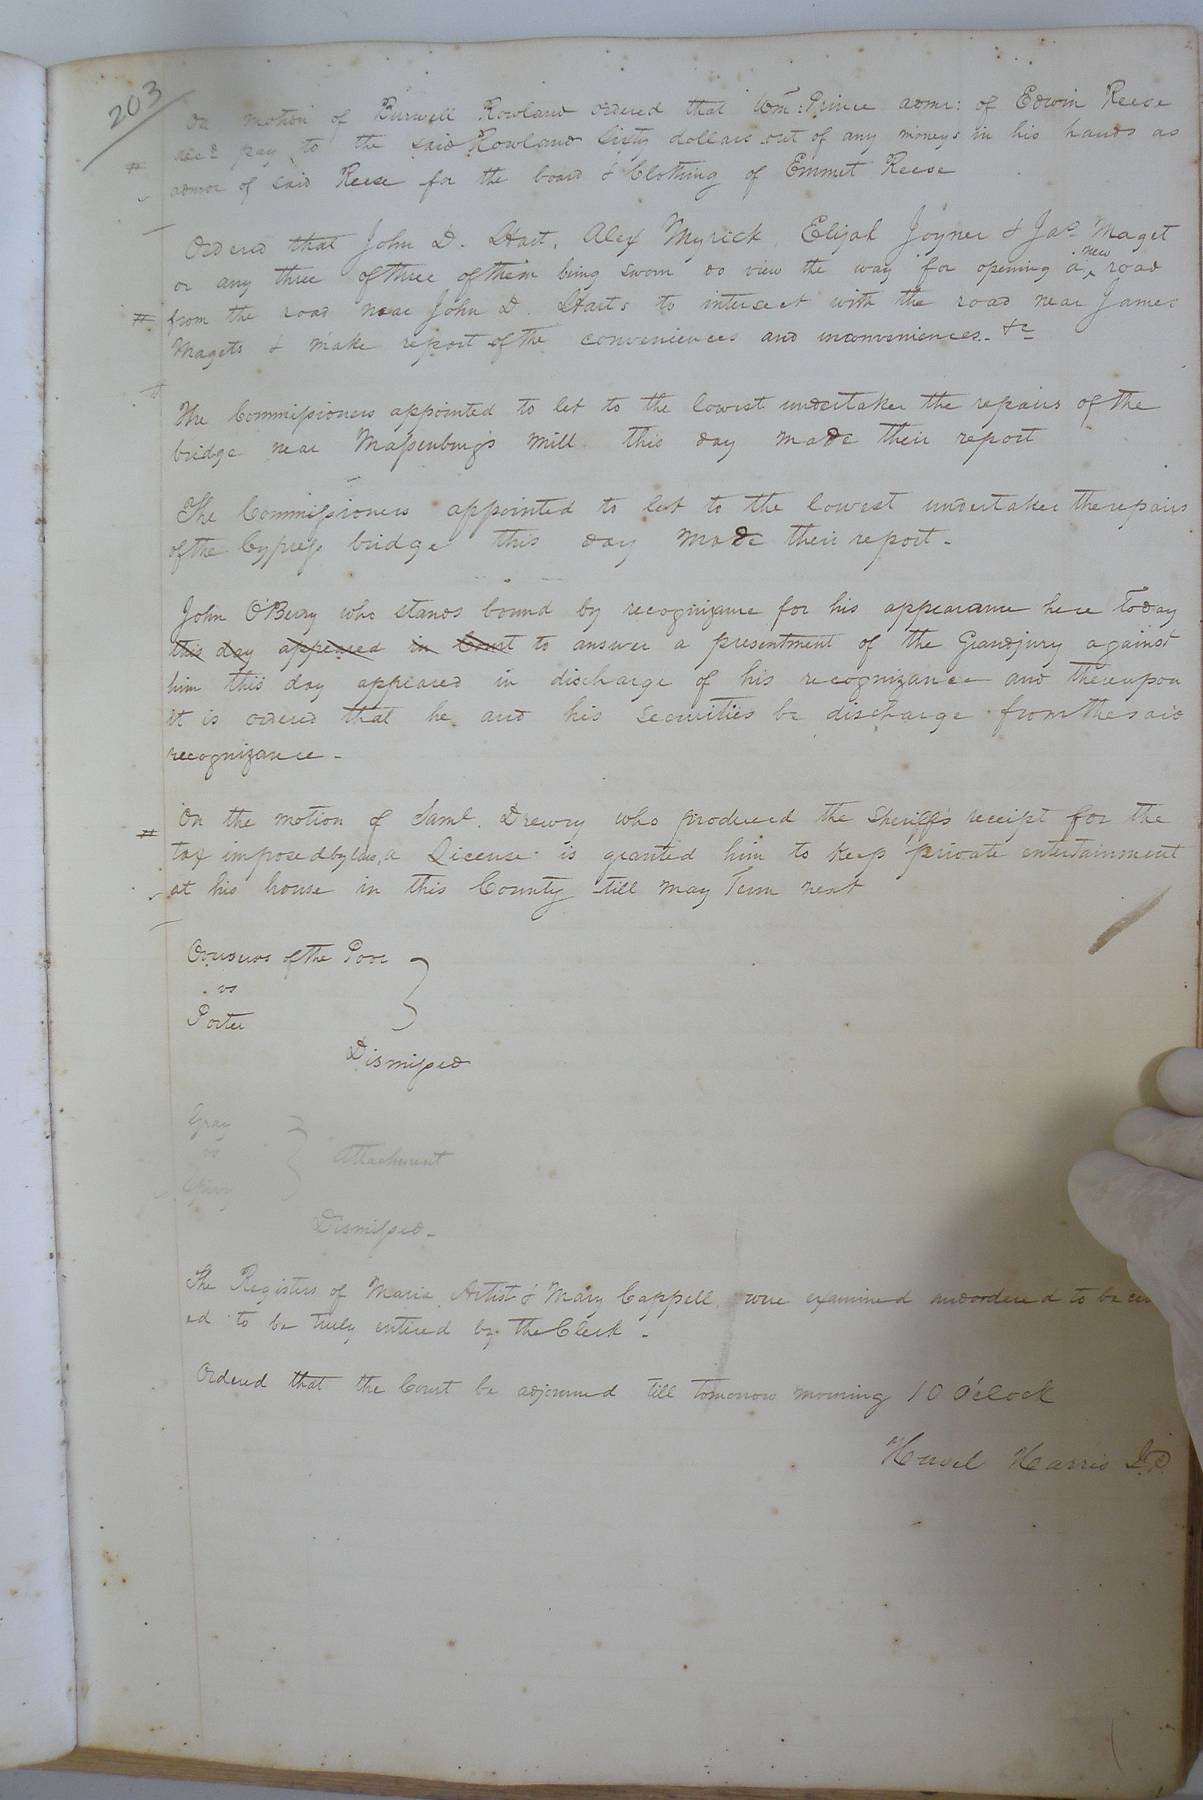 203
On motion of Burwell Rowland ordered that Wm: Prince admr: of Edwin Reese
decd pay to the said Rowland Sixty dollars out of any moneys in his hands as
# admor of said Reese for the board & Clothing of Emmet Reese
Ordered that John D. Hart, Alex Myrick, Elijah Joyner & Jas. Maget
or any three of three of them being sworn do view the way for opening a new road
# from the road near John D. Harts to intersect with the road near James
Magets & make report of the conveniences and inconveniences. &c
The Commissioners appointed to let to the lowest undertaker the repairs of the
bridge near Massenburgs mill this day made their report
The Commissioners appointed to let to the lowest undertaker the repairs
of the Cypress bridge this day made their report -
John O'Berry who stands bound by recognizance for his appearance here Today
this day appeared in Court to answer a presentment of the Grandjury against
him this day appeared in discharge of his recognizance and thereupon
it is ordered that he and his securities be discharge from the said
recognizance -
# On the motion of Saml. Drewry who produced the Sheriff's receipt for the
tax imposed by law, a License is granted him to keep private entertainment
at his house in this County till may Term next
Overseers of the Poor
vs
Porter
Dismissed
Gray
vs
Attachment
Dismissed -
The Registers of Maria Artist & Mary Cappell were examined and ordered to be cer
ed to be truly entered by the Clerk -
Ordered that the Court be adjourned till tomorrow morning 10 O'clock
Harris